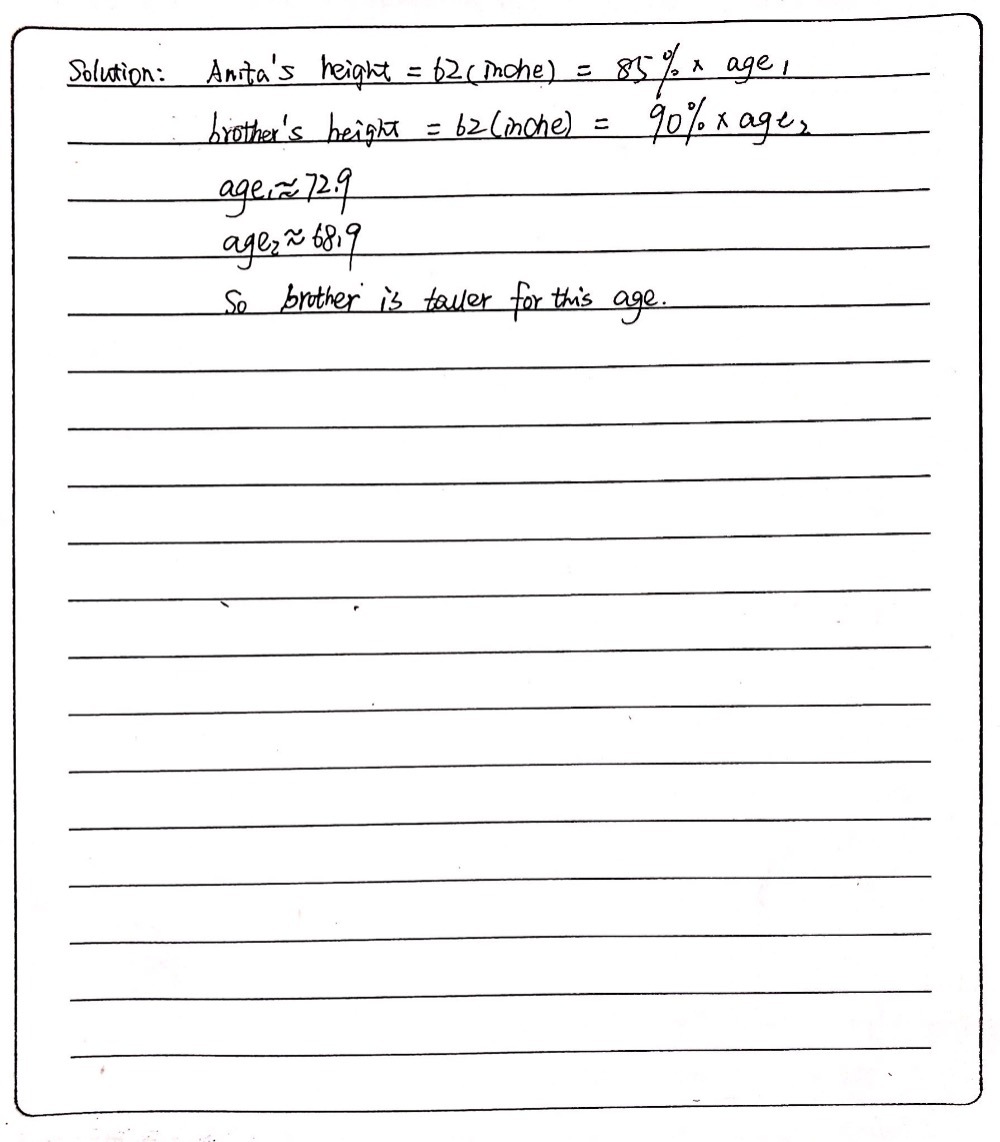 Solution: Anita's height = 62 (inche) = 85% × age₁
brother's height = 62 (inche) = 90% × age₂
age₁ ≈ 72.9
age₂ ≈ 68.9
So brother is taller for this age.